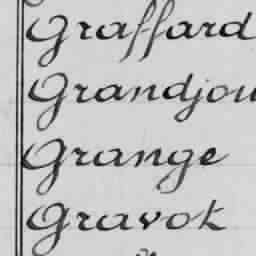 Graffard
Grandjou
Grange
Gravok